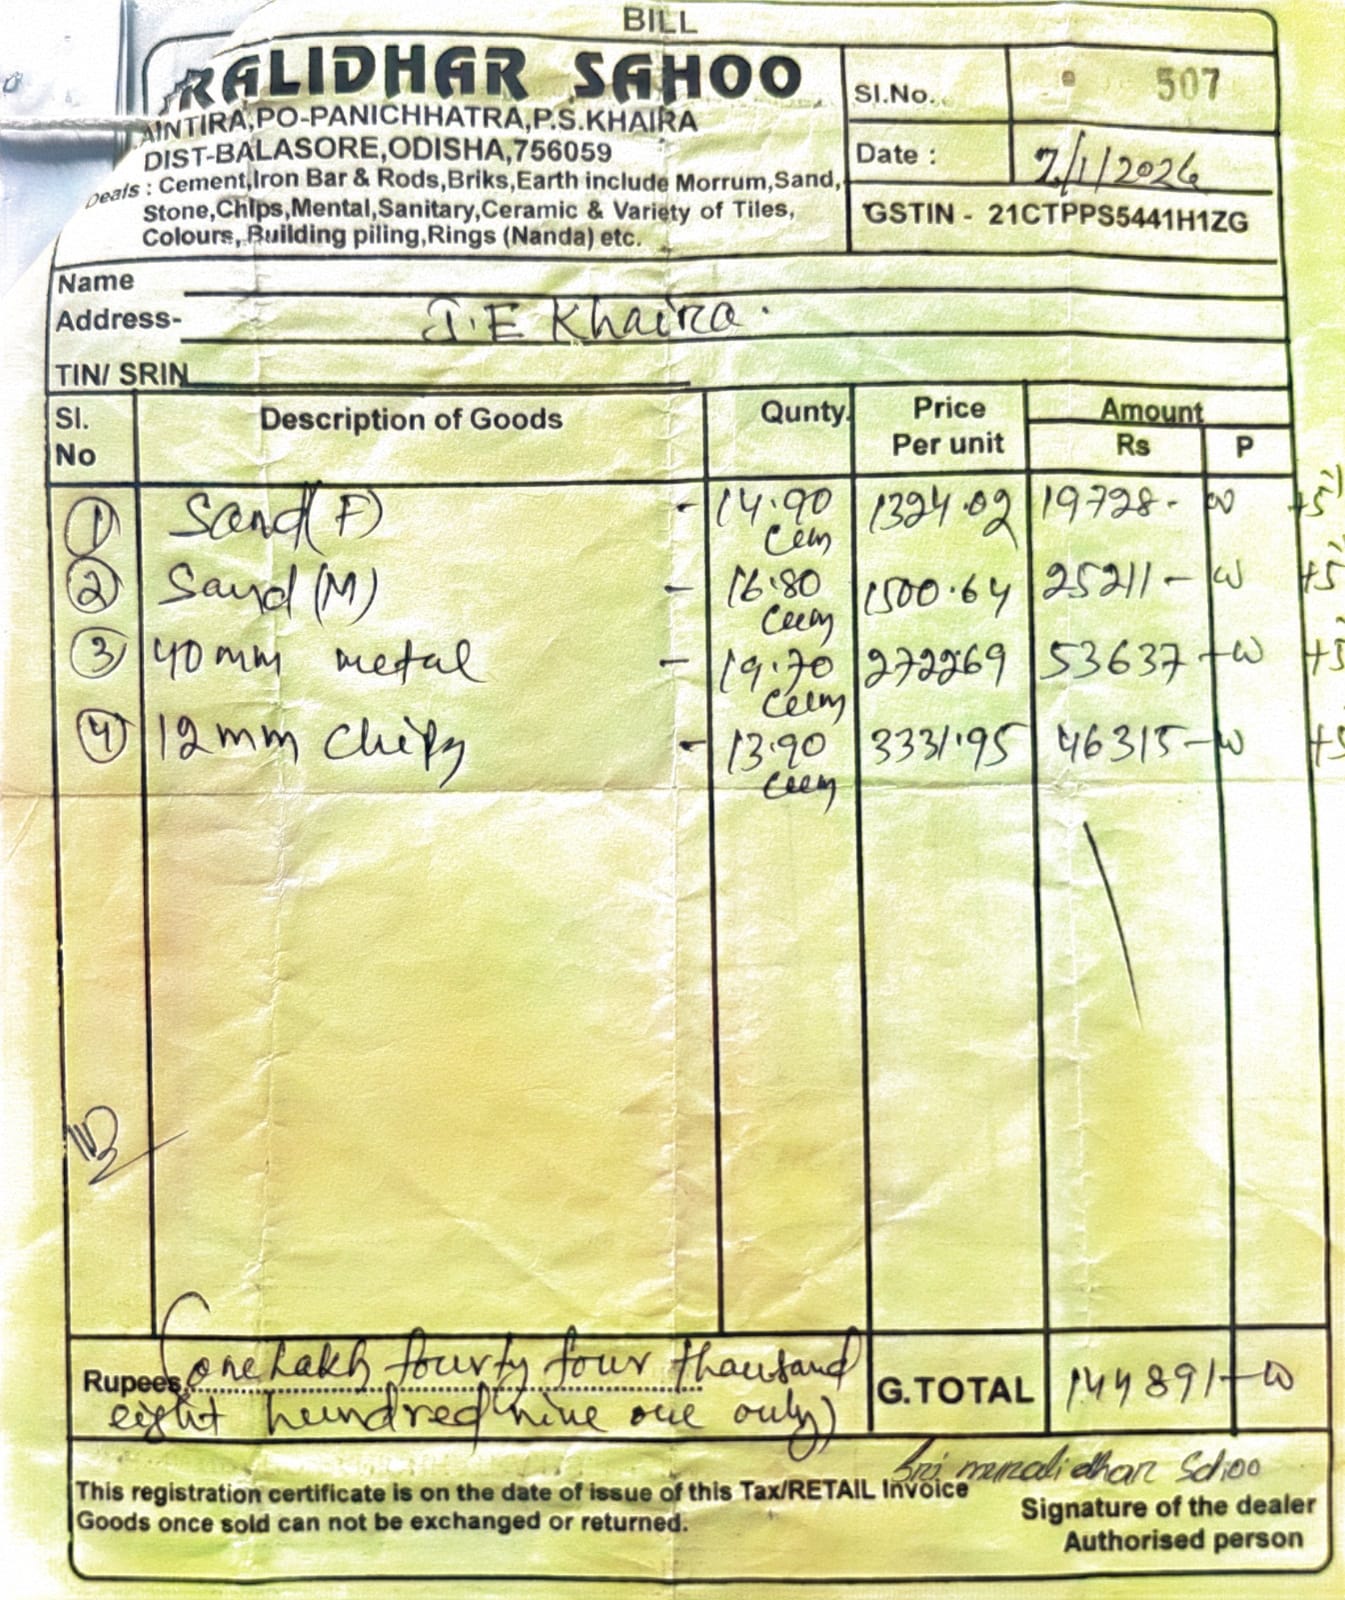 BILL
RALIDHAR SAHOO
AINTIRA,PO-PANICHHATRA,P.S.KHAIRA
DIST-BALASORE,ODISHA,756059
Deals : Cement,Iron Bar & Rods,Briks,Earth include Morrum,Sand,
Stone,Chips,Mental,Sanitary,Ceramic & Variety of Tiles,
Colours, Building piling,Rings (Nanda) etc.
SI.No. 507
Date : 7/1/2026
GSTIN - 21CTPPS5441H1ZG
Name
Address- J.E Khaira.
TIN/ SRIN
SI. No Description of Goods Qunty. Price Per unit Amount Rs P
1 Sand(F) - 14.90 Cum 1324.02 19728- 00 +5%
2 Sand(M) - 16.80 Cum 1500.64 25211- 00 +5%
3 40mm metal - 19.70 Cum 2722.69 53637- 00 +5
4 12mm Chips - 13.90 Cum 3331.95 46315- 00 +5
Rupees (one Lakh fourty four thausand
eight hundred nine one only)
G.TOTAL 144891-00
Sri muralidhar Sahoo
This registration certificate is on the date of issue of this Tax/RETAIL Invoice
Goods once sold can not be exchanged or returned.
Signature of the dealer
Authorised person